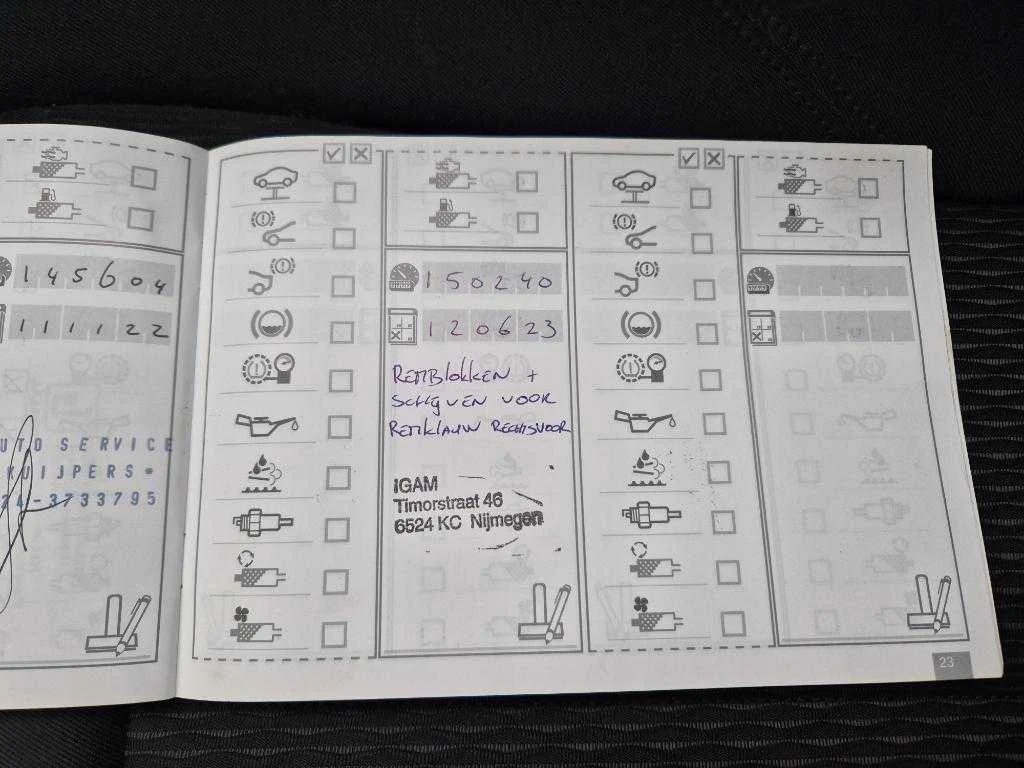 145604
111122
UTO SERVICE
KUIJPERS
24-3733795
150240
120623
REMBLOKKEN +
SCHIJVEN VOOR
REMKLAUW RECHTSVOOR
IGAM
Timorstraat 46
6524 KC Nijmegen
23